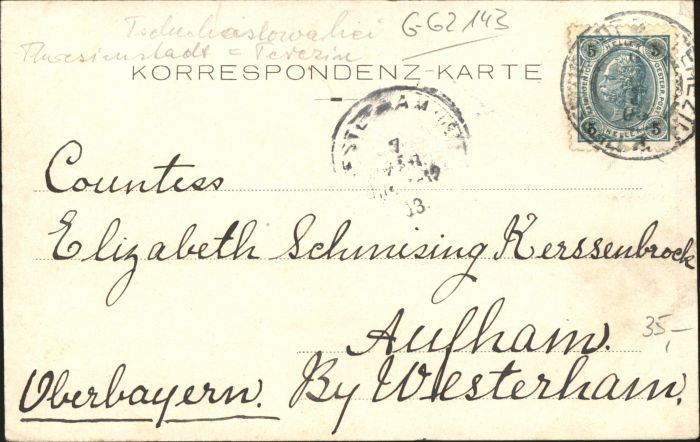 Tschechoslowakei
G-G2143
Theresienstadt = Terezin
KORRESPONDENZ-KARTE
5 5
HELLER
5 5
Countess
Elizabeth Schmising Kerssenbrock
35,-
Aufham.
Oberbayern. By Westerham.